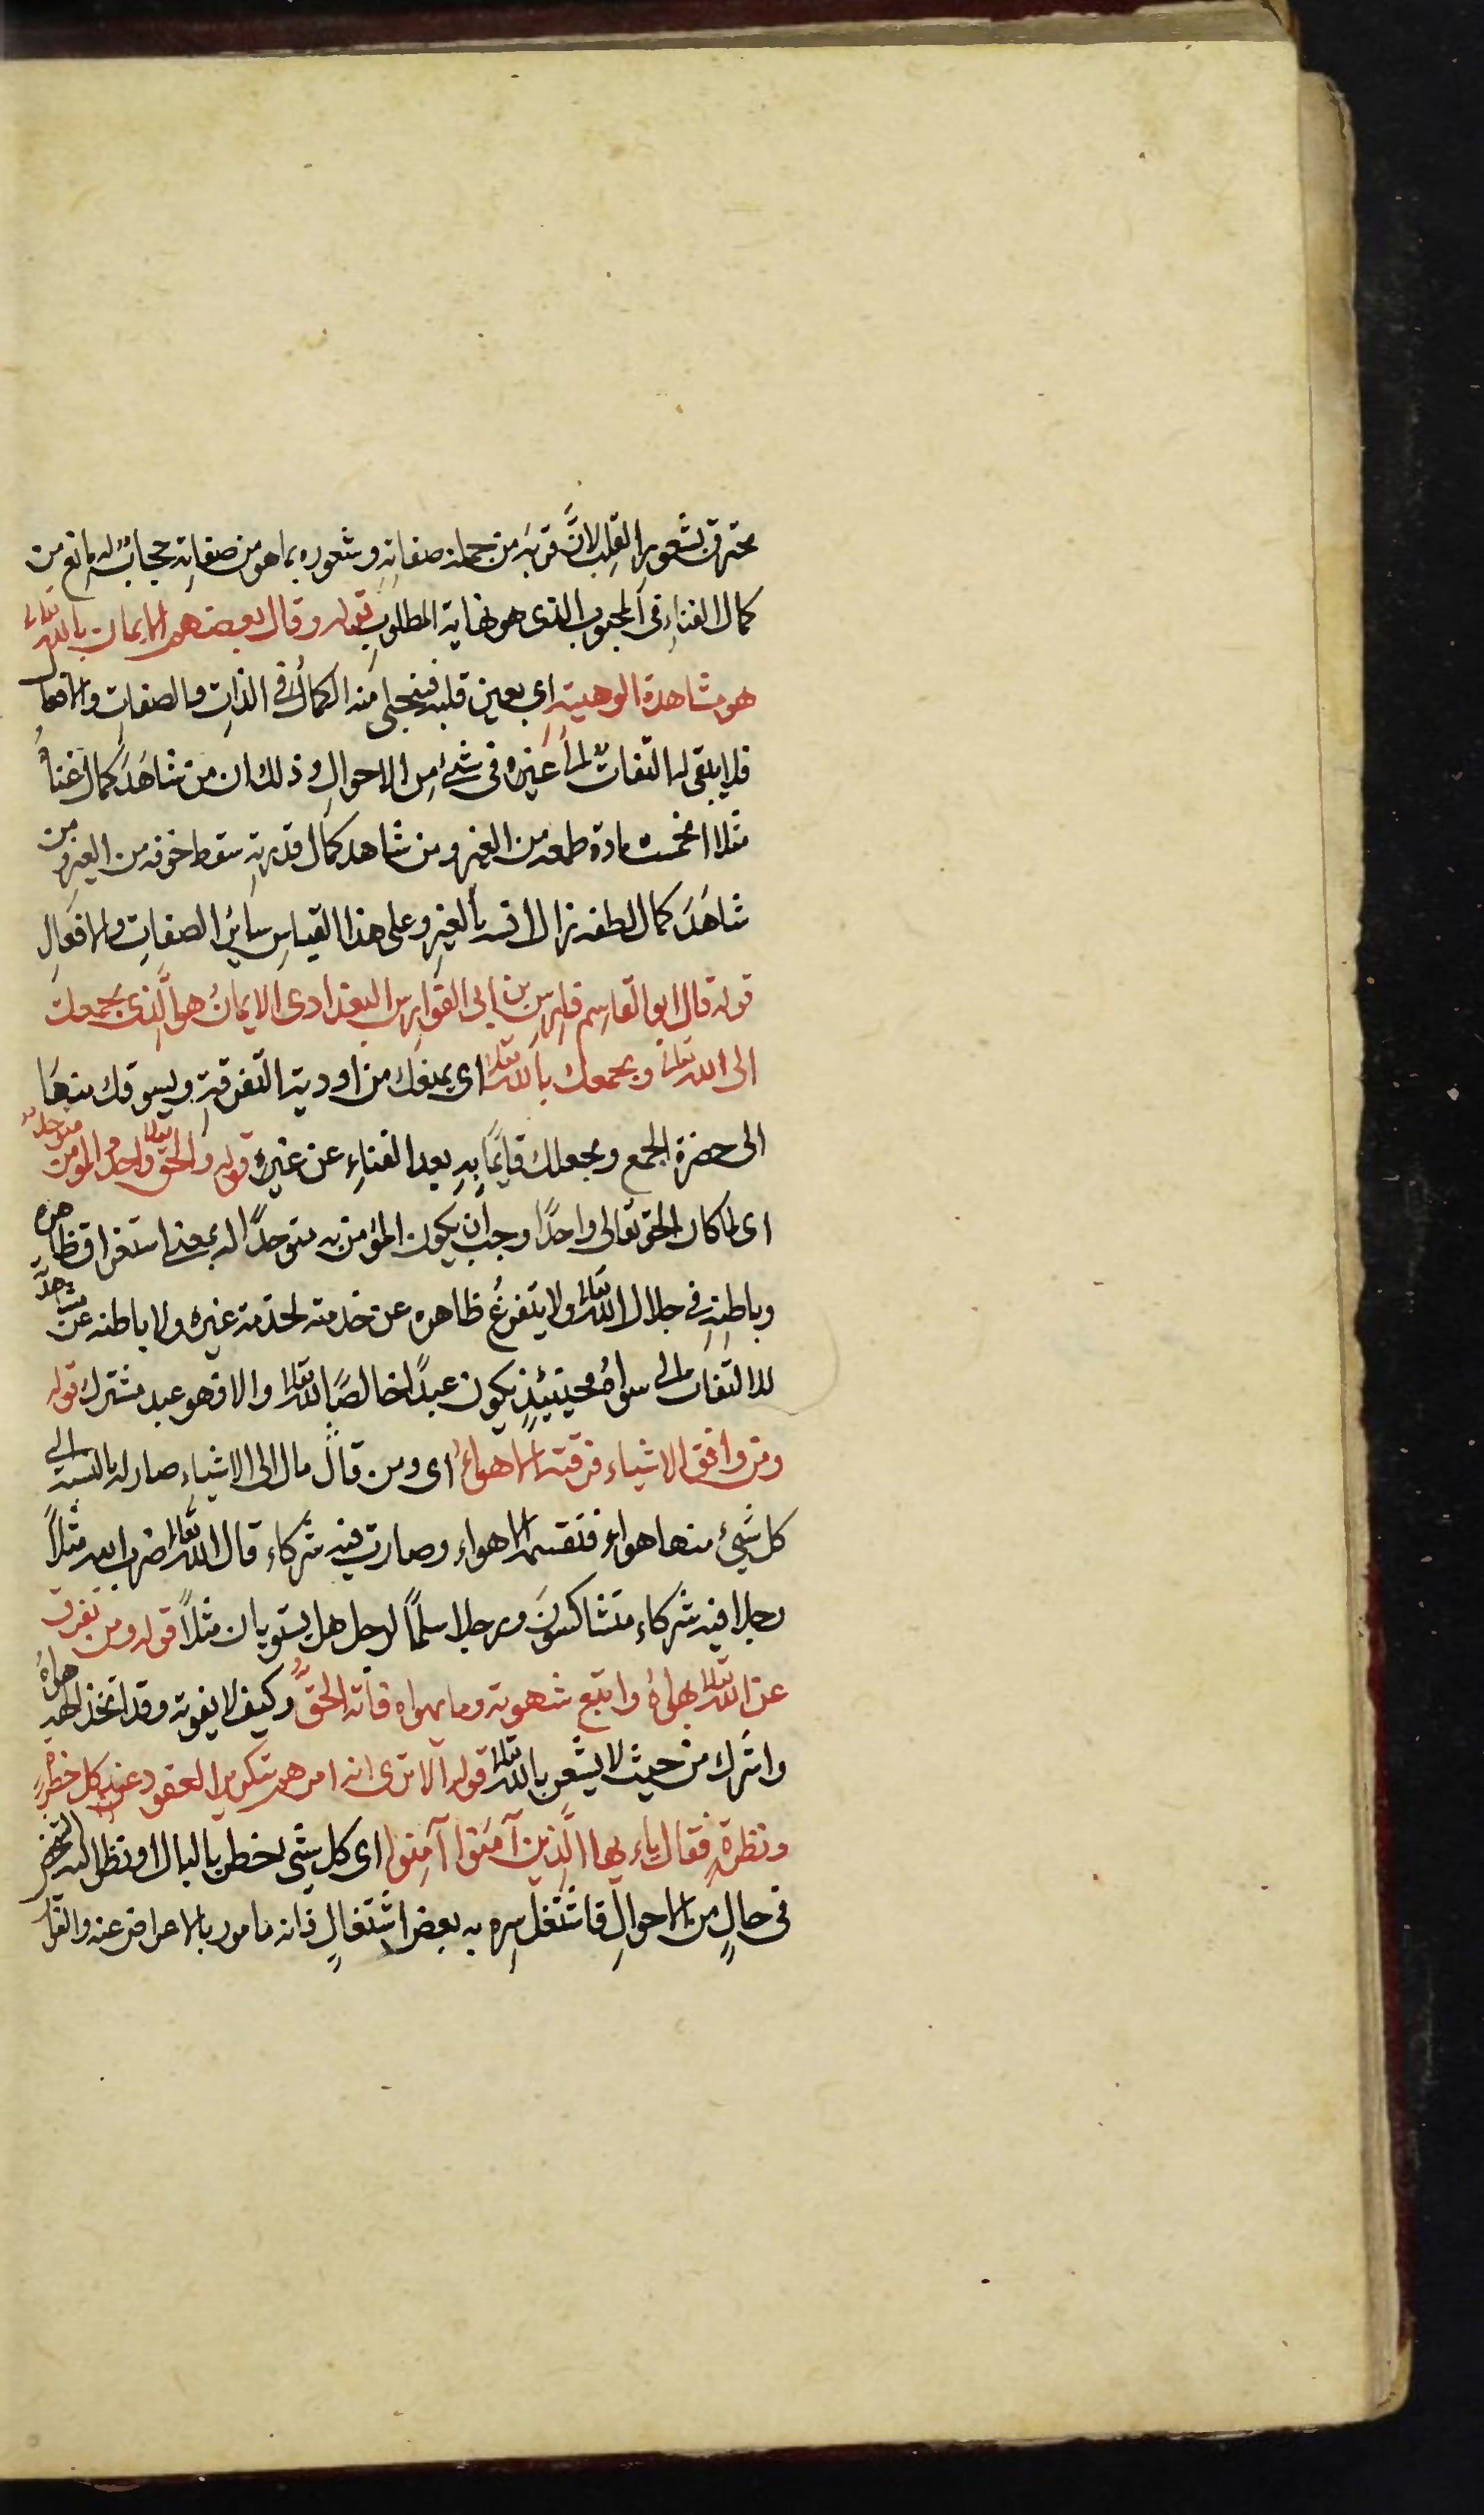 محترق بشعور القلب لانَّ قربَه من جملة صفاتِهِ وشعوره بما هو من صفاتِه حجابٌ له مانع من
كمال الفناءِ فى المحبوب الذى هو نهاية المطلوبِ قوله وقال بعضهم الايمان بالله تعالى
هو مشاهدة الوهيته اى بعين قلبه فيتجلى منه الكمالُ فى الذاتِ والصفاتِ والافعال
فلا يبقى له التفاتٌ الى غيره فى شئ مِن الاحوالِ وذلك ان من شاهَدَ كمال غناهُ
مثلا انحسمت مادة طمعه من الغير ومن شاهد كمال قدرتِهِ سقط خوفه من الغير ومن
شاهَدَ كمال لطفه زال انسه بالغيرِ وعلى هذا القياسِ سايرُ الصفاتِ والافعالِ
قوله قال ابو القاسم فارس بن ابى الفوارس البغدادى الايمانُ هو الَّذى يجمعك
الى الله تعالى ويجمعك بالله تعالى اى يمنعك من اودية التفرقةِ ويسوقك منها
الى حضرة الجمع ويجعلك قايمًا بِهِ بعد الفناءِ عن غيره قوله والحق تعالى واحدٌ والمومن متوحدٌ
اى لما كان الحق تعالى واحدًا وجب اَن يكون المؤمن به متوحدًا له بمعنى استغراق ظاهره
وباطنِهِ فى جلال الله تعالى ولا يتفرغُ ظاهره عن خدمته لخدمة غيره ولا باطنه عن مشاهدة
للالتفات الى سواهُ فحينيئذٍ يكون عبدًا خالصًا لله تعالى والا فهو عبد مشترك قوله
ومن وافق الاشياء فرقته الاهواءُ اى ومن قال مال الى الاشياءِ صار له بالنسبة الى
كل شَيْئ منها هواء فتقسمه الاهواء وصارت فيه شركاء قال الله تعالى ضرب الله مثلاً
رجلا فيه شركاء متشاكسونَ ورجلا سلمًا لرجل هل يستويان مثلاً قوله ومن تفرق
عن الله تعالى بهواهُ واتبع شهوته وما يهواه فاته الحقُّ وكيف لا يفوته وقد اتخذ الهه هواهُ
واشرك من حيث لا يشعر بالله تعالى قوله الا ترى انه امرهم بتكرير العقود عند كل خطرةٍ
ونظرةٍ فقال ياءيها الَّذين آمَنوا آمِنوا اى كل شئ يخطر بالبال او نظر اليه
فى حالٍ من الاحوالِ فاشتغل سِره به بعض اشتغالٍ فانه مامور بالاعراض عنه